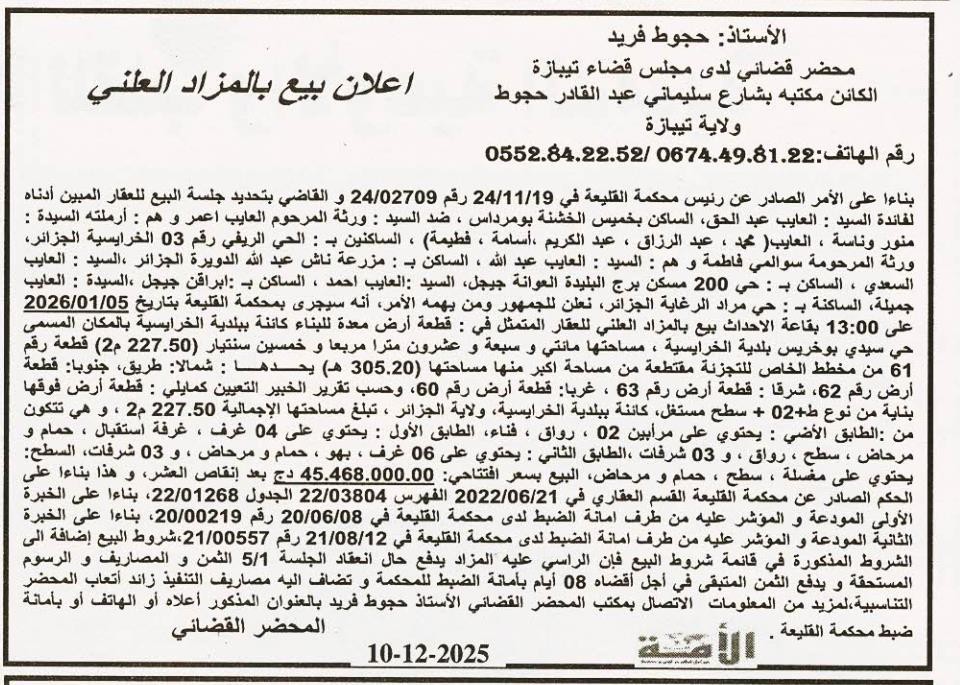 الأستاذ: حجوط فريد
محضر قضائي لدى مجلس قضاء تيبازة
الكائن مكتبه بشارع سليماني عبد القادر حجوط
ولاية تيبازة
رقم الهاتف:0674.49.81.22 /0552.84.22.52
اعلان بيع بالمزاد العلني
بناءا على الأمر الصادر عن رئيس محكمة القليعة في 24/11/19 رقم 24/02709 و القاضي بتحديد جلسة البيع للعقار المبين أدناه
لفائدة السيد : العايب عبد الحق، الساكن بخميس الخشنة بومرداس ، ضد السيد : ورثة المرحوم العايب اعمر و هم : أرملته السيدة :
منور وناسة ، العايب( محمد ، عبد الرزاق ، عبد الكريم ،أسامة ، فطيمة) ، الساكنين بـ : الحي الريفي رقم 03 الخرايسية الجزائر،
ورثة المرحومة سوالمي فاطمة و هم : السيد : العايب عبد الله ، الساكن بـ : مزرعة ناش عبد الله الدويرة الجزائر ،السيد : العايب
السعدي ، الساكن بـ : حي 200 مسكن برج البليدة العوانة جيجل، السيد :العايب احمد ، الساكن بـ :ابراقن جيجل ،السيدة : العايب
جميلة، الساكنة بـ : حي مراد الرغاية الجزائر، نعلن للجمهور ومن يهمه الأمر، أنه سيجرى بمحكمة القليعة بتاريخ 2026/01/05
على 13:00 بقاعة الاحداث بيع بالمزاد العلني للعقار المتمثل في : قطعة أرض معدة للبناء كائنة ببلدية الخرايسية بالمكان المسمى
حي سيدي بوخريس بلدية الخرايسية ، مساحتها مائتي و سبعة و عشرون مترا مربعا و خمسين سنتيار (227.50 م2) قطعة رقم
61 من مخطط الخاص للتجزئة مقتطعة من مساحة اكبر منها مساحتها (305.20 هـ) يحدهـا : شمالا: طريق، جنوبا: قطعة
أرض رقم 62، شرقا : قطعة أرض رقم 63 ، غربا: قطعة أرض رقم 60، وحسب تقرير الخبير التعيين كمايلي : قطعة أرض فوقها
بناية من نوع ط+02 + سطح مستغل، كائنة ببلدية الخرايسية، ولاية الجزائر ، تبلغ مساحتها الإجمالية 227.50 م2 ، و هي تتكون
من :الطابق الأضي : يحتوي على مرأبين 02 ، رواق ، فناء، الطابق الأول : يحتوي على 04 غرف ، غرفة استقبال ، حمام و
مرحاض ، سطح ، رواق ، و 03 شرفات ،الطابق الثاني : يحتوي على 06 غرف ، بهو ، حمام و مرحاض ، و 03 شرفات، السطح:
يحتوي على مغسلة ، سطح ، حمام و مرحاض، البيع بسعر افتتاحي: 45.468.000.00 دج بعد إنقاص العشر، و هذا بناءا على
الحكم الصادر عن محكمة القليعة القسم العقاري في 2022/06/21 الفهرس 22/03804 الجدول 22/01268، بناءا على الخبرة
الأولى المودعة و المؤشر عليه من طرف امانة الضبط لدى محكمة القليعة في 20/06/08 رقم 20/00219، بناءا على الخبرة
الثانية المودعة و المؤشر عليه من طرف امانة الضبط لدى محكمة القليعة في 21/08/12 رقم 21/00557،شروط البيع إضافة الى
الشروط المذكورة في قائمة شروط البيع فإن الراسي عليه المزاد يدفع حال انعقاد الجلسة 5/1 الثمن و المصاريف و الرسوم
المستحقة و يدفع الثمن المتبقى في أجل أقضاه 08 أيام بأمانة الضبط للمحكمة و تضاف اليه مصاريف التنفيذ زائد أتعاب المحضر
التناسبية،لمزيد من المعلومات الاتصال بمكتب المحضر القضائي الأستاذ حجوط فريد بالعنوان المذكور أعلاه أو الهاتف أو بأمانة
ضبط محكمة القليعة .
المحضر القضائي
الأمة
10-12-2025